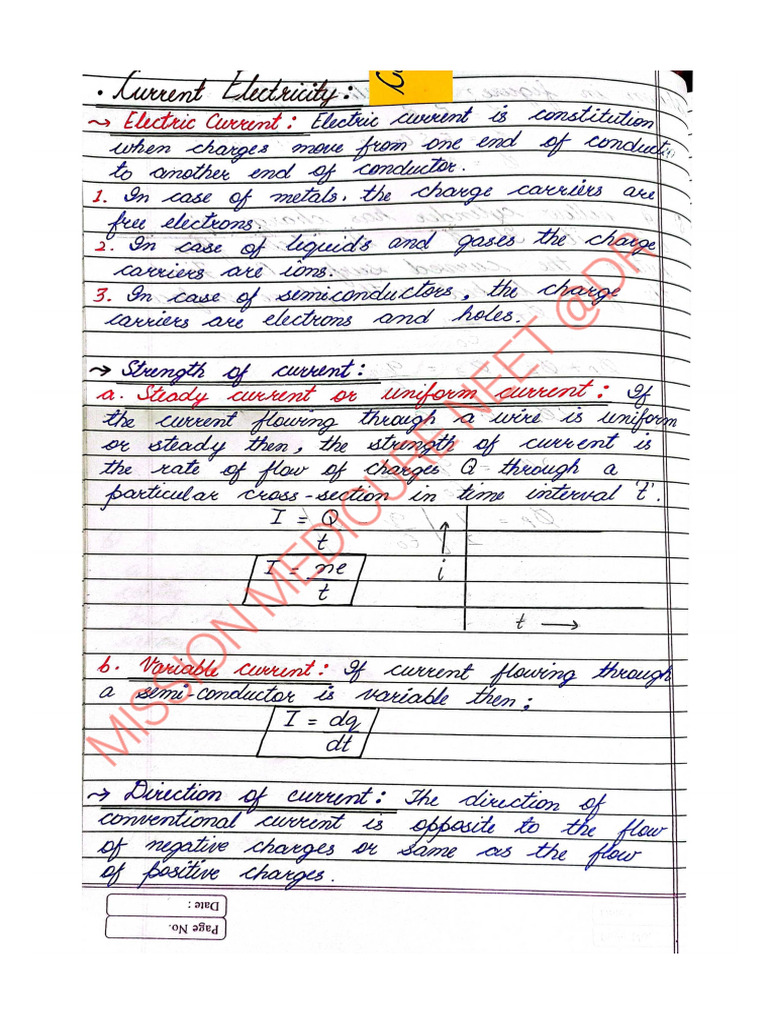 • Current Electricity:
→ Electric Current: Electric current is constitution
when charges move from one end of conductor
to another end of conductor.
1. In case of metals, the charge carriers are
free electrons.
2. In case of liquids and gases the charge
carriers are ions.
3. In case of semiconductors, the charge
carriers are electrons and holes.
→ Strength of current:
a. Steady current or uniform current: If
the current flowing through a wire is uniform
or steady then, the strength of current is
the rate of flow of charges Q through a
particular cross-section in time interval 't'.
I = Q
t
I = ne
t
i
t →
b. Variable current: If current flowing through
a semi-conductor is variable then;
I = dq
dt
→ Direction of current: The direction of
conventional current is opposite to the flow
of negative charges or same as the flow
of positive charges.
Date :
Page No.
MISSION MEDICURE NEET @DR